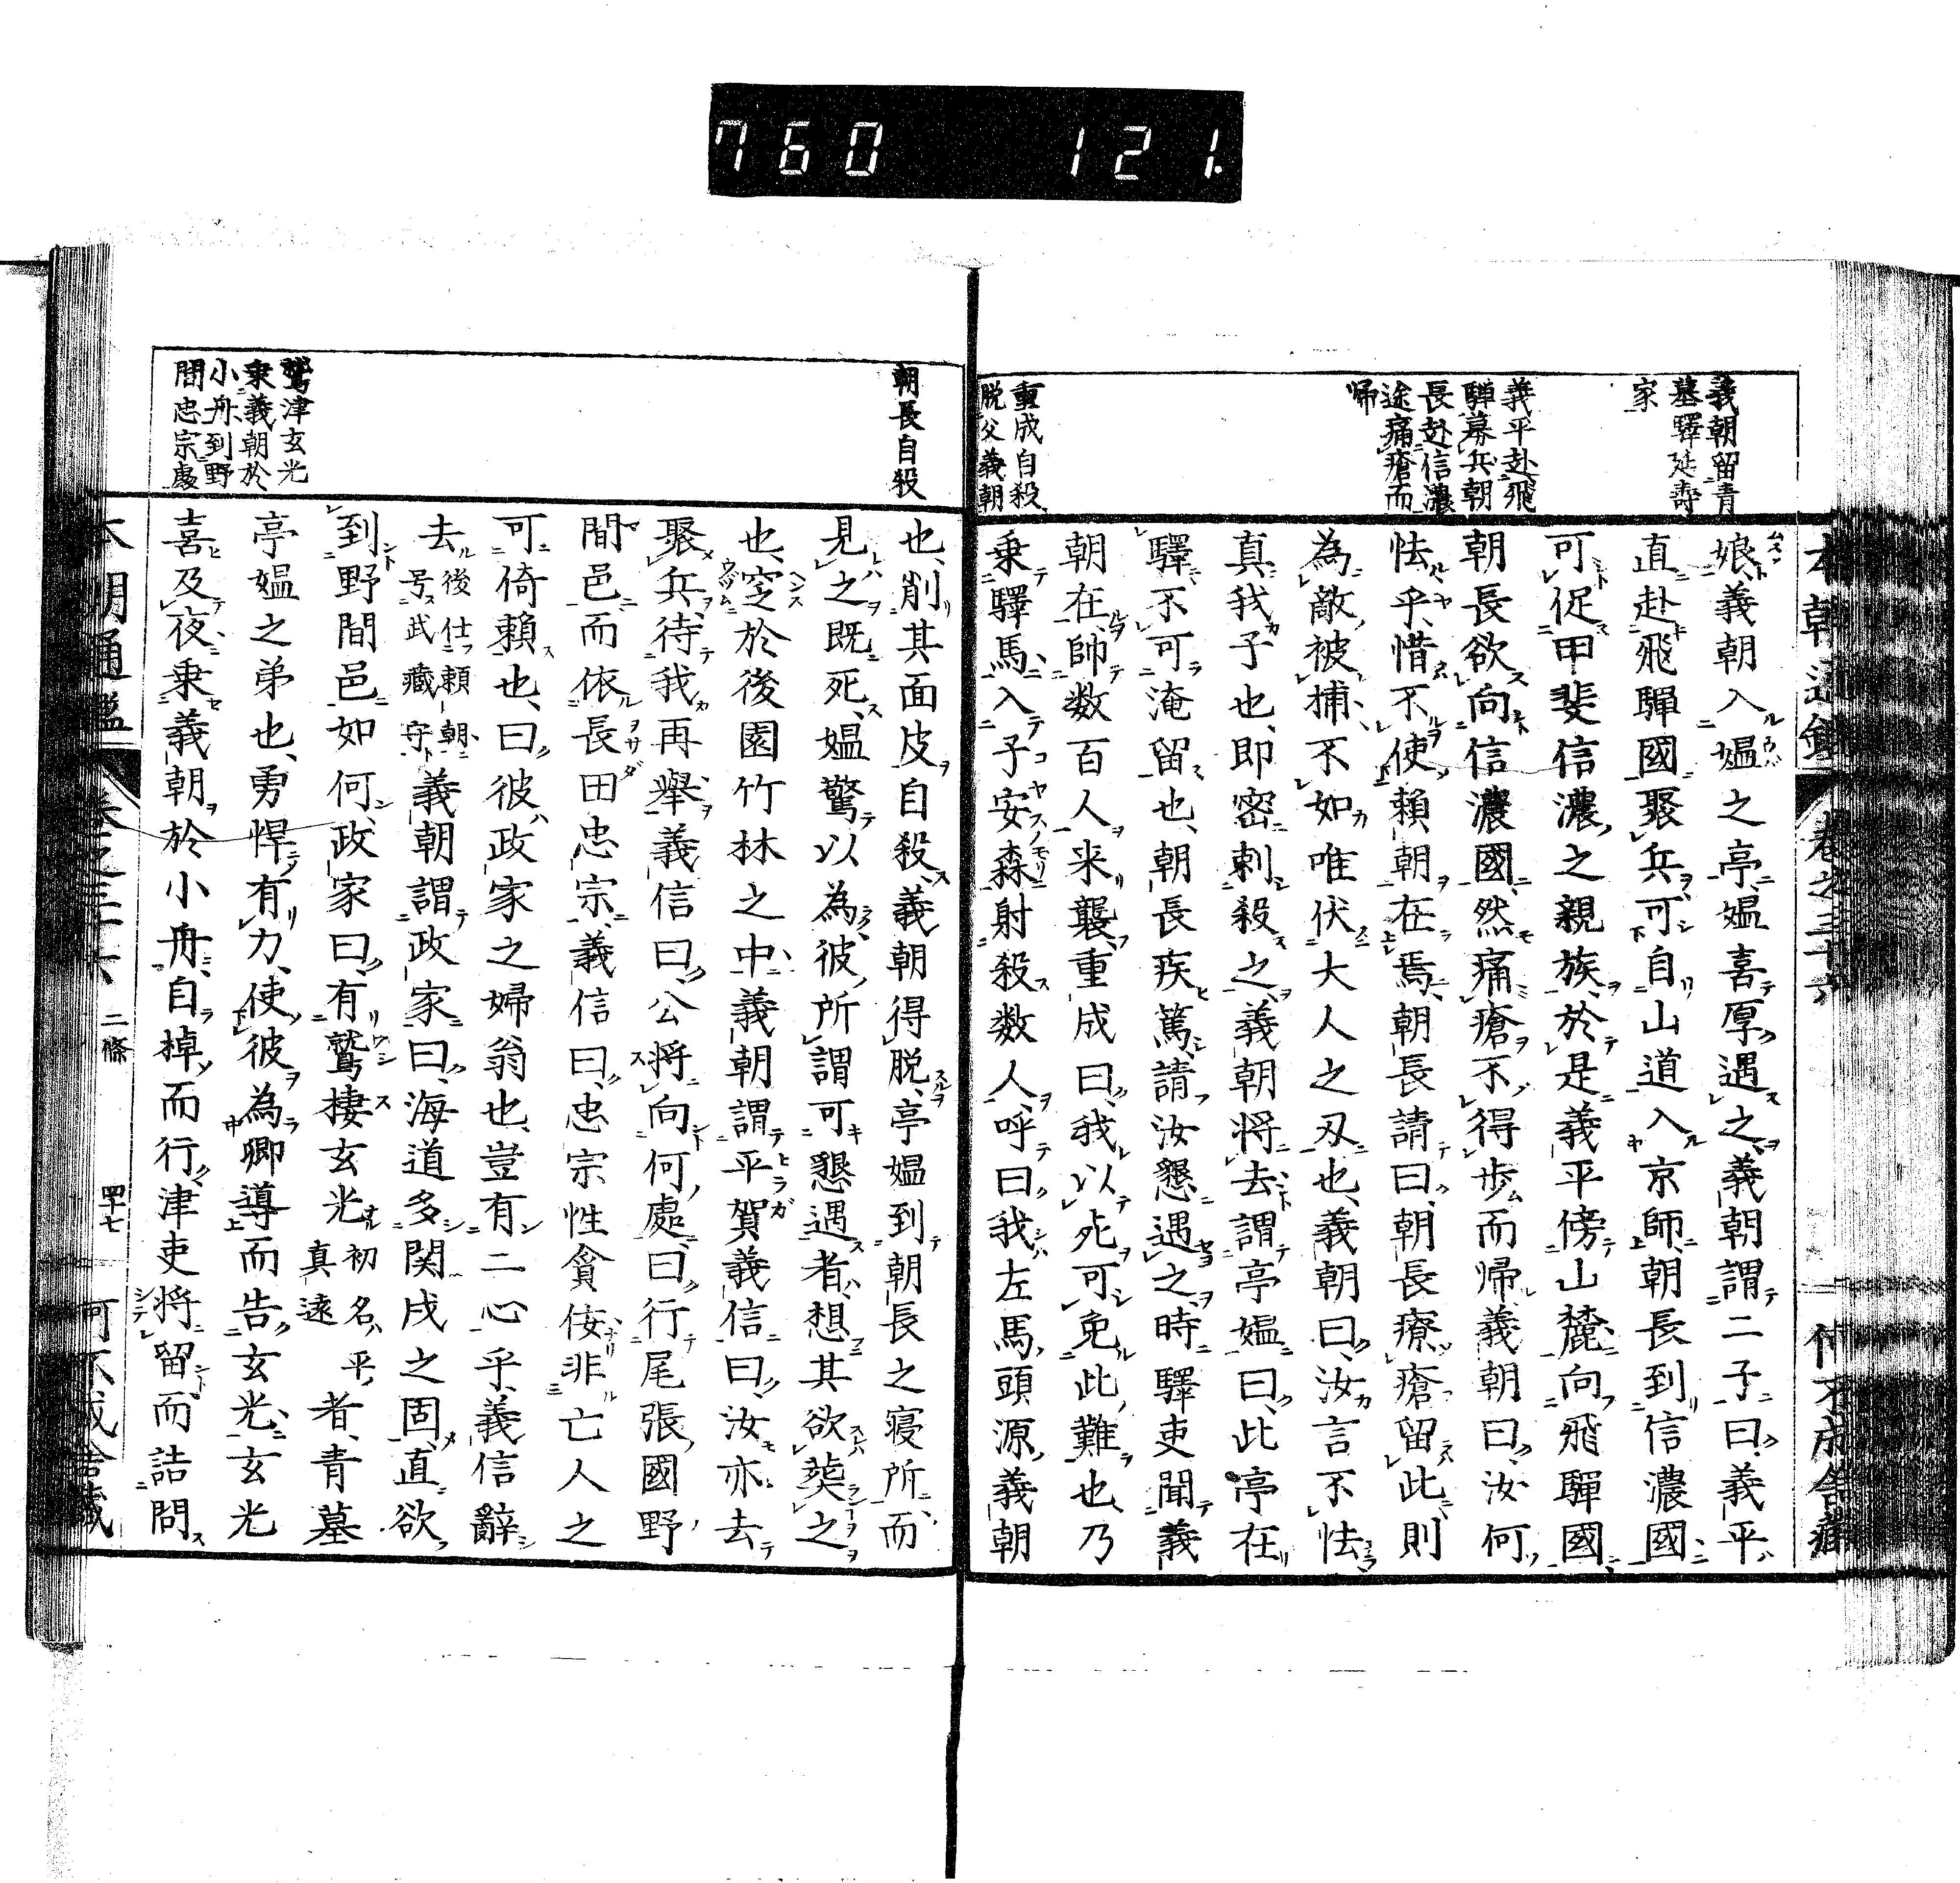 760 121.
本朝通鑑 卷之三十六
義朝留青
墓驛延壽
家
義平赴飛
驒募兵朝
長赴信濃
途痛瘡而
歸
重成自殺
脱父義朝
娘、義朝入媼之亭、媼喜厚遇之、義朝謂二子曰、義平
直赴飛驒國聚兵、可自山道入京師、朝長到信濃國
可促甲斐信濃之親族、於是義平傍山麓向飛驒國
朝長欲向信濃國、然痛瘡不得歩而帰、義朝曰、汝何
怯乎、惜不使頼朝在焉、朝長請曰、朝長療瘡留此、則
為敵被捕、不如唯伏大人之刃也、義朝曰、汝言不怯
真我子也、即密刺殺之、義朝将去謂亭媼曰、此亭在
驛、不可淹留也、朝長疾篤、請汝懇遇之、時驛吏聞義
朝在、帥数百人来襲、重成曰、我以死可免此難也、乃
乗驛馬入子安森射殺数人、呼曰、我左馬頭源義朝
朝長自殺
鷲津玄光
乗義朝於
小舟到野
間忠宗處
也、削其面皮自殺、義朝得脱、亭媼到朝長之寝所而
見之既死、媼驚以為彼所謂可懇遇者、想其欲葬之
也、窆於後園竹林之中、義朝謂平賀義信曰、汝亦去
聚兵、待我再舉、義信曰、公将向何處、曰、行尾張國野
間邑而依長田忠宗、義信曰、忠宗性貪佞、非亡人之
可倚頼也、曰、彼政家之婦翁也、豈有二心乎、義信辭
去後仕頼朝号武藏守義朝謂政家曰、海道多関戍之固、直欲
到野間邑如何、政家曰、有鷲棲玄光初名平真遠者、青墓
亭媼之弟也、勇悍有力、使彼為卿導而告玄光、玄光
喜、及夜乗義朝於小舟、自棹而行、津吏将留而詰問
本朝通鑑 卷之三十六 二條 四十七